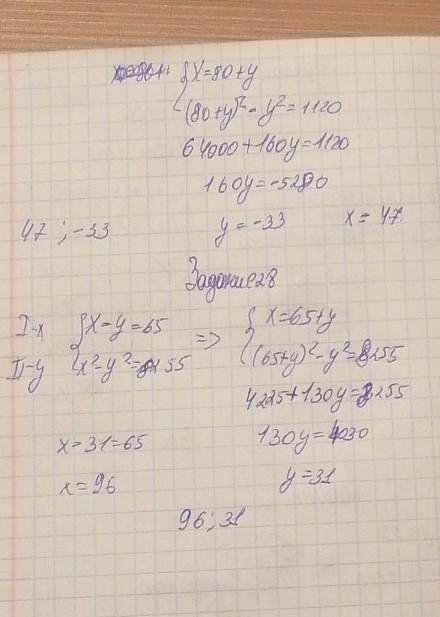 { x=80+y
(80+y)²-y²=1120
64000+160y=1120
160y=-5280
47 ; -33 y=-33 x=47
Задание 28
I-x { x-y=65 => { x=65+y
II-y x²-y²=8255 (65+y)²-y²=8255
4225+130y=8255
x=31=65 130y=4030
x=96 y=31
96; 31